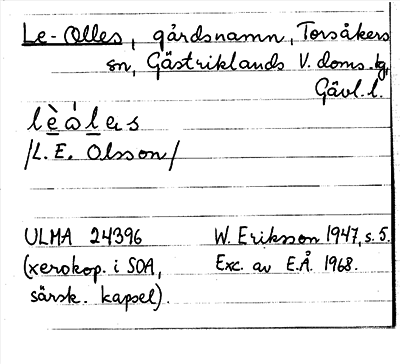 Le-Olles, gårdsnamn, Torsåkers
sn, Gästriklands V. doms.tg,
Gävl. l.
lèȯ́les
/L. E. Olsson/
ULMA 24396
(xerokop. i SOA,
särsk. kapsel).
W. Eriksson 1947, s. 5.
Exc. av E.Å. 1968.